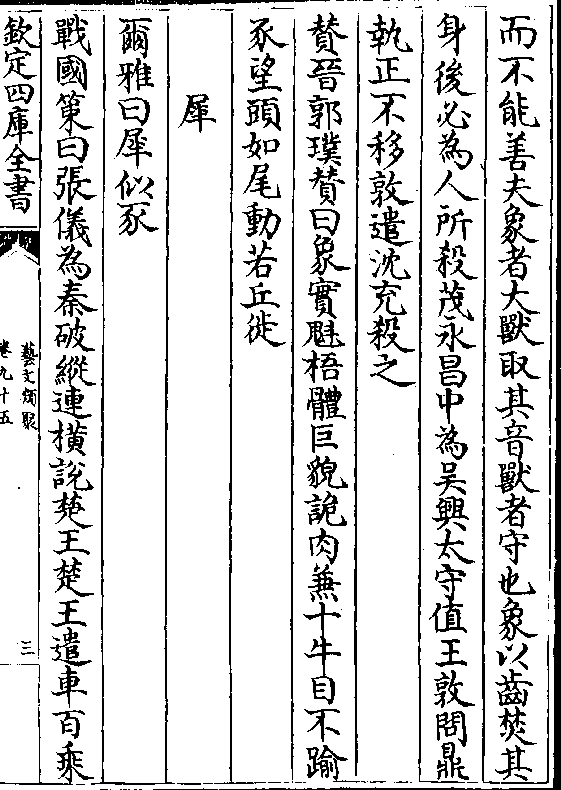 而不能善夫象者大獸取其音獸者守也象以齒焚其
身後必為人所殺茂永昌中為吴興太守值王敦問鼎
執正不移敦遣沈充殺之
賛晉郭璞賛曰象實魁梧體巨貌詭肉兼十牛目不踰
豕望頭如尾動若丘徙
犀
爾雅曰犀似豕
戰國策曰張儀為秦破縱連橫說楚王楚王遣車百乘
欽定四庫全書
藝文類聚
卷九十五
三